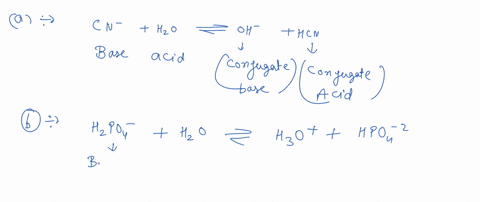 (a) ÷> CN⁻ + H₂O ⇌ OH⁻ + HCN
↓ ↓
Base acid (conjugate base) (Conjugate Acid)
(b) ÷> H₂PO₄⁻ + H₂O ⇌ H₃O⁺ + HPO₄⁻²
↓
B.